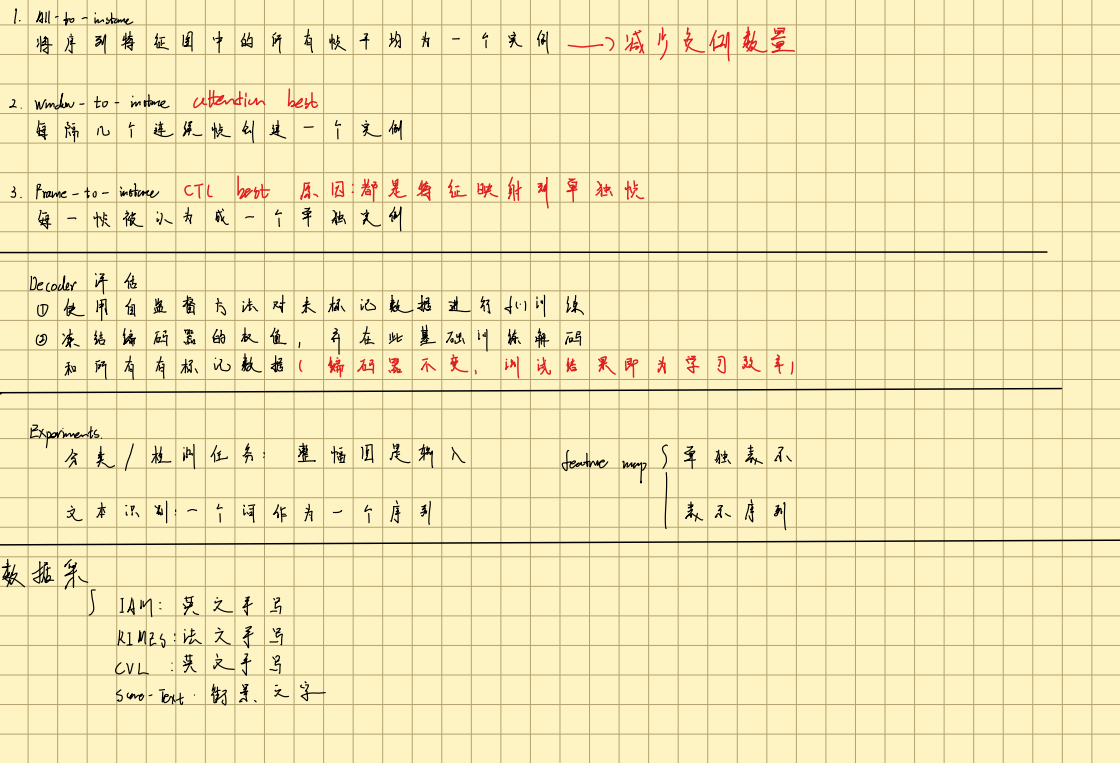 1. All-to-instance
将序列特征图中的所有帧平均为一个实例 → 减少负例数量
2. Window-to-instance attention best
每隔几个连续帧创建一个实例
3. Frame-to-instance CTC best 原因:都是特征映射到单独帧
每一帧被认为成一个单独实例
Decoder 评估
① 使用自监督方法对未标记数据进行预训练
② 冻结编码器的权值, 并在此基础训练解码
和所有有标记数据(编码器不变, 测试结果即为学习效率)
Experiments.
分类/检测任务: 整幅图是输入
feature map { 单独表示
文本识别: 一个词作为一个序列
表示序列
数据集
{ IAM: 英文手写
RIMES: 法文手写
CVL: 英文手写
Scene-Text: 街景文字